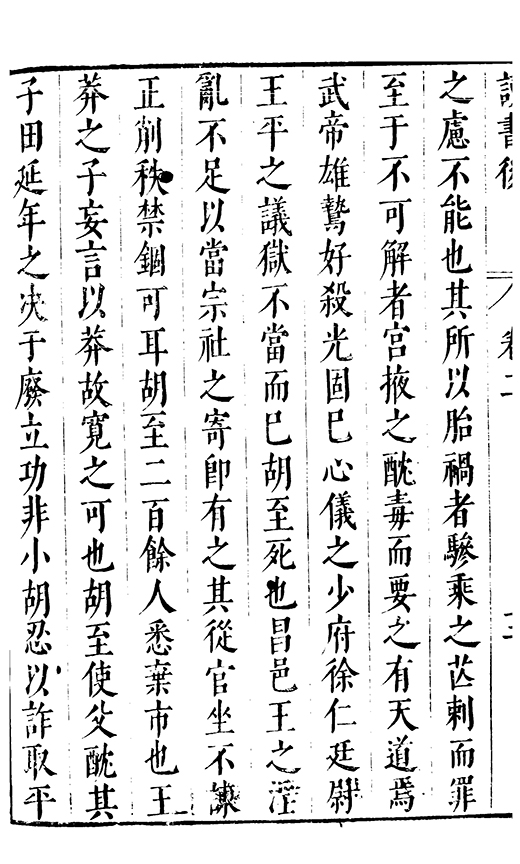 讀書後 卷二
之慮不能也其所以胎禍者驂乘之芒刺而罪
至于不可解者宮掖之酖毒而要之有天道焉
武帝雄鷙好殺光固已心儀之少府徐仁廷尉
王平之議獄不當而已胡至死也昌邑王之淫
亂不足以當宗社之寄卽有之其從官坐不諫
正削秩禁錮可耳胡至二百餘人悉棄市也王
莽之子妄言以莽故寬之可也胡至使父酖其
子田延年之决于廢立功非小胡忍以詐取平